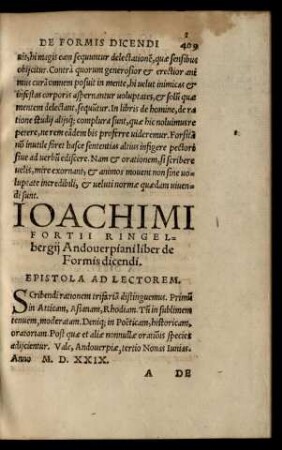 DE FORMIS DICENDI
409
nis, hi magis eam sequuntur delectationẽ, quæ sensibus
obijcitur. Contrà quorum generosior & erectior ani
mus curã omnem posuit in mente, hi velut inimicas &
infestas corporis aspernantur uoluptates, & solũ quæ
mentem delectant, sequũtur. In libris de homine, de ra
tione studij alijsq; complura sunt, quæ hîc noluimus re
petere, ne rem eãdem bis proferre uideremur. Forsitã
nõ inutile foret hasce sententias altius infigere pectori
siue ad uerbũ ediscere. Nam & orationem, si scribere
uelis, mire exornant, & animos mouent non sine uo-
luptate incredibili, & ueluti normæ quædam uiuen
di sunt.
IOACHIMI
FORTII RINGEL-
bergij Andouerpiani liber de
Formis dicendi.
EPISTOLA AD LECTOREM.
SCribendi rationem trifariã distinguemus. Primũ
in Atticam, Asianam, Rhodiam. Tũ in sublimem
tenuem, moderatam. Deniq; in Poëticam, historicam,
oratoriam. Post quæ et aliæ nonnullæ orationis species
adijcientur. Vale, Andouerpiæ, tertio Nonas Iunias.
Anno M. D. XXIX.
A DE